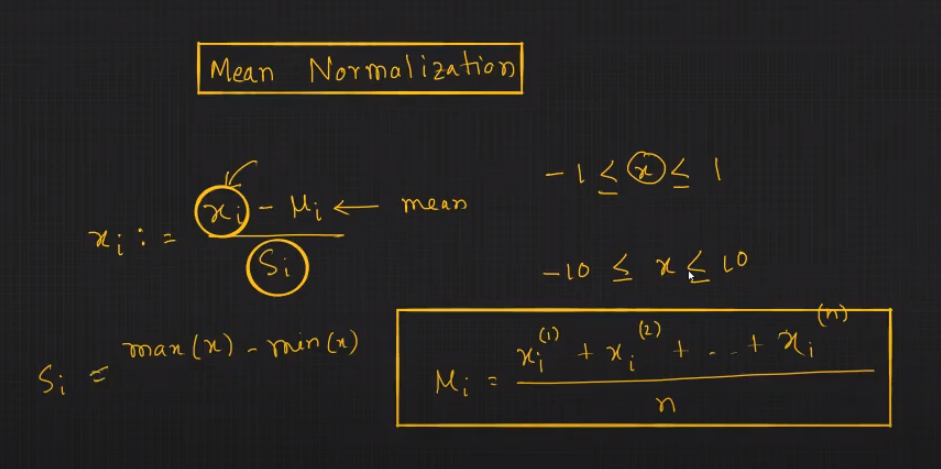 Mean Normalization
xᵢ := (xᵢ - μᵢ) / Sᵢ ← mean
-1 ≤ x ≤ 1
-10 ≤ x ≤ 10
Sᵢ = max(x) - min(x)
μᵢ = (xᵢ⁽¹⁾ + xᵢ⁽²⁾ + ... + xᵢ⁽ⁿ⁾) / n